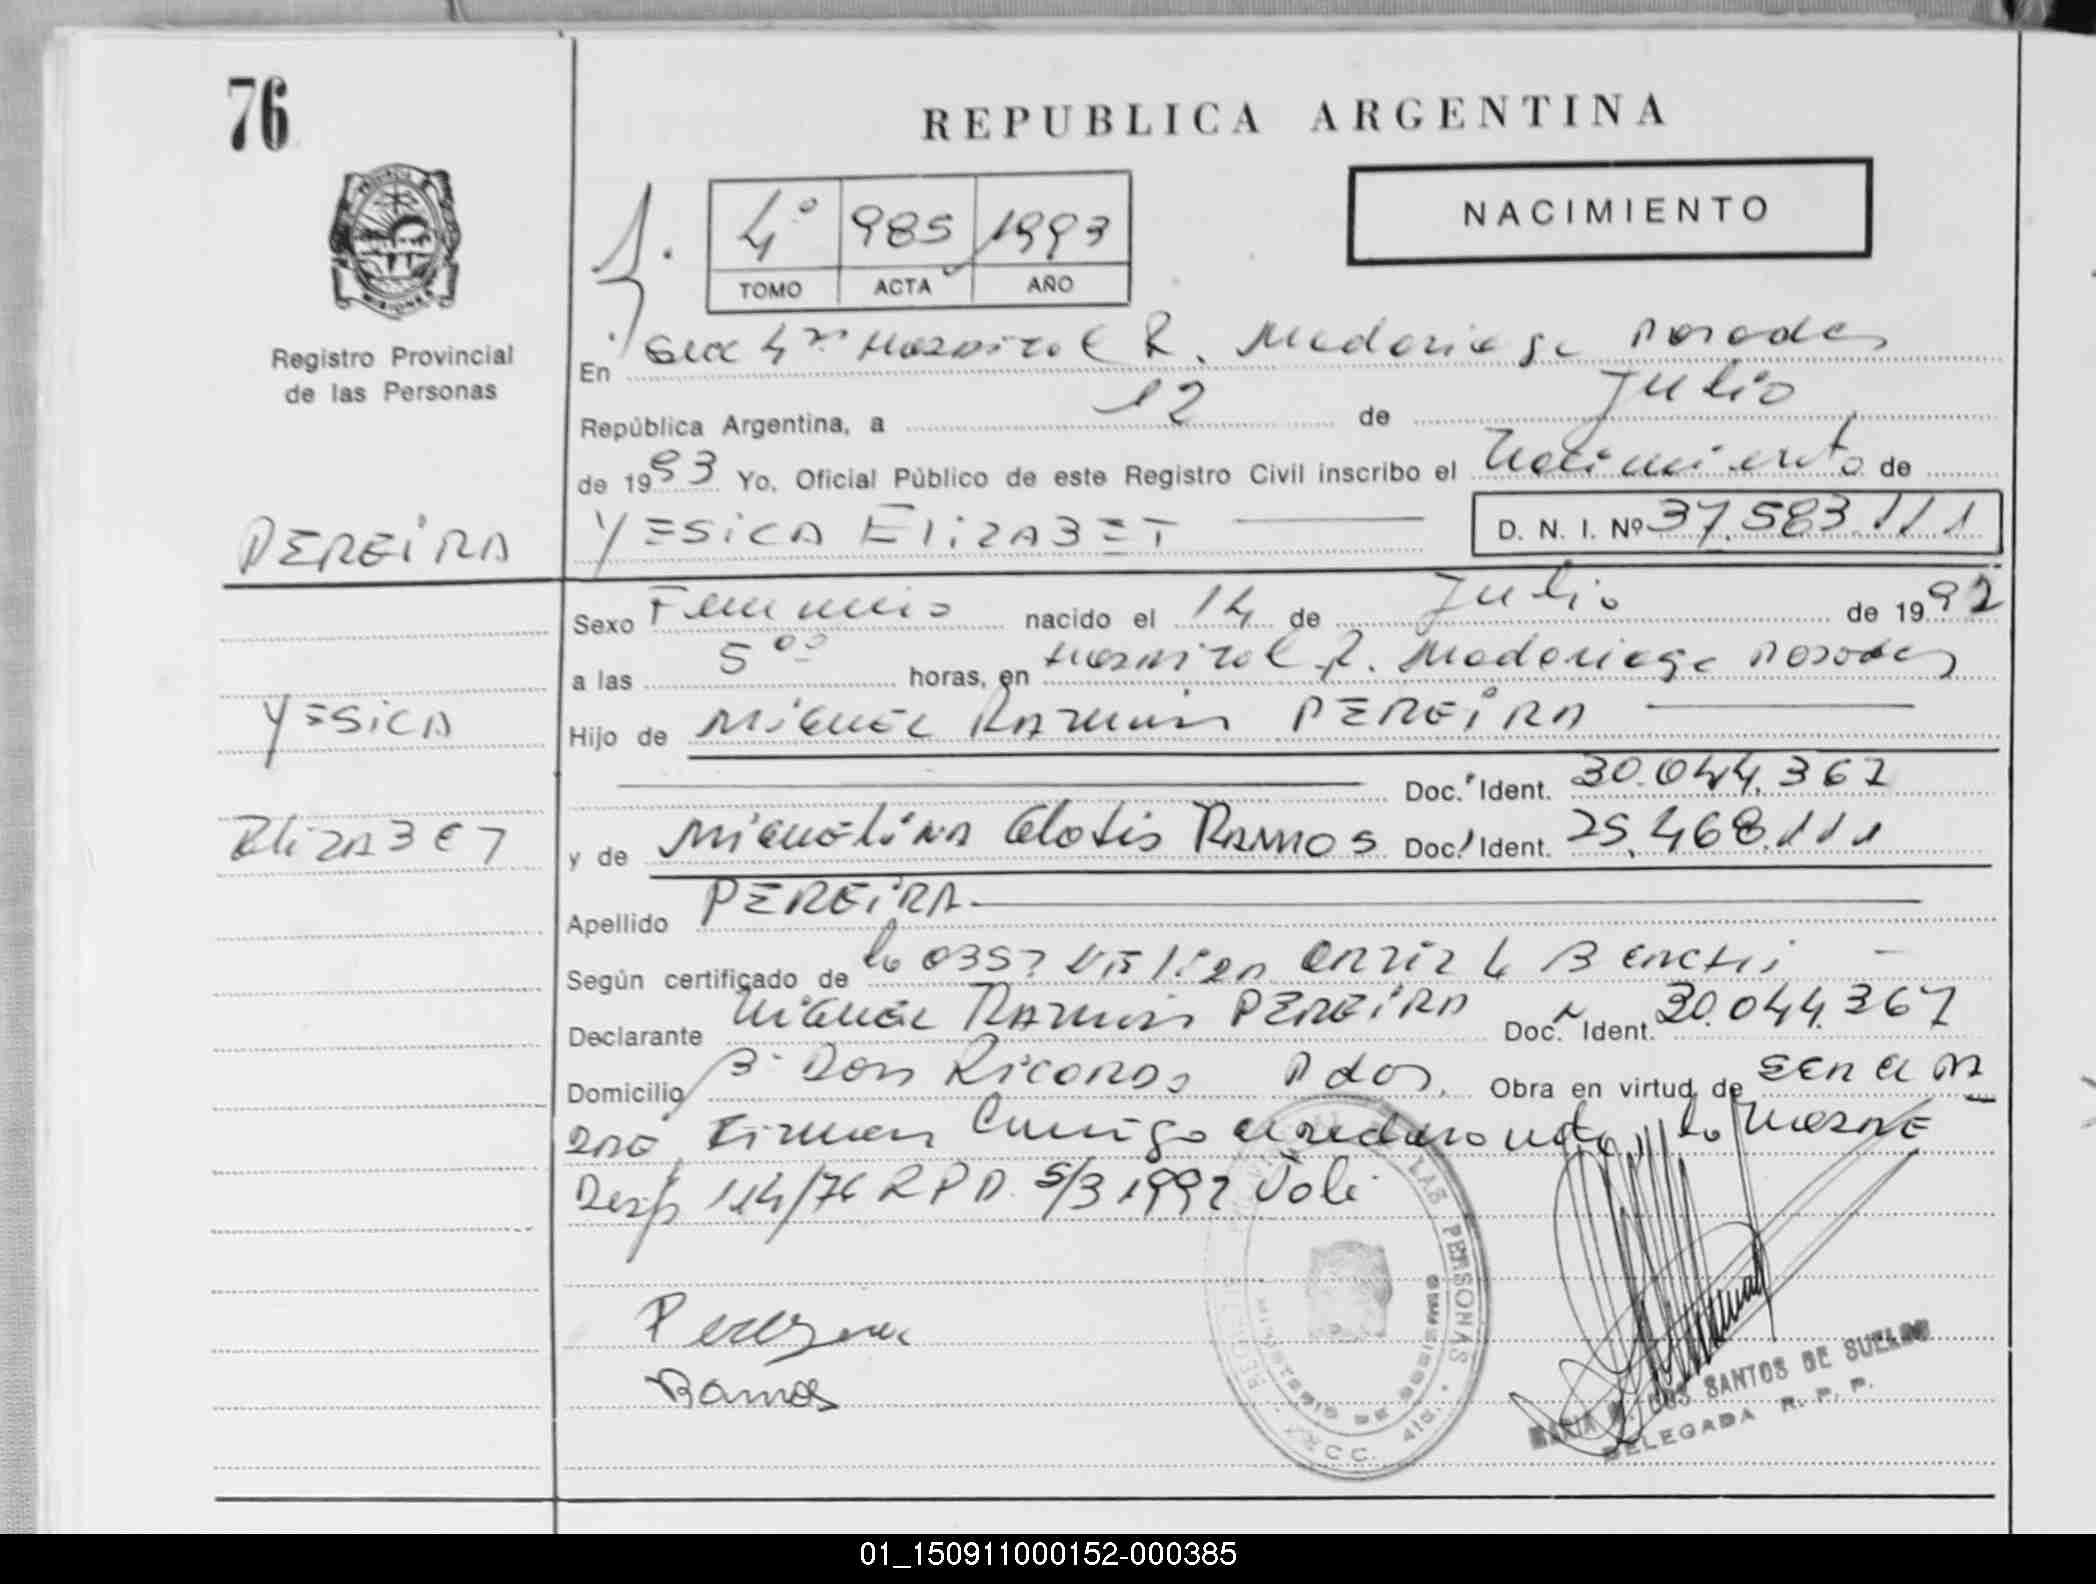 76
REPUBLICA ARGENTINA
NACIMIENTO
4º 985 1993
TOMO ACTA AÑO
PROVINCIA
MISIONES
Registro Provincial
de las Personas
En Secc 4ta Hospital R. Madariaga Posadas
República Argentina, a 12 de Julio
de 1993 Yo, Oficial Público de este Registro Civil inscribo el Nacimiento de
PEREIRA
YESICA ELIZABET D. N. I. Nº 37.583.111
Sexo Femenino nacido el 14 de Julio de 1992
a las 5 00 horas, en Hospital R. Madariaga Posadas
YESICA
Hijo de MIGUEL RAMON PEREIRA
Doc. Ident. 30.044.367
ELIZABET
y de MIGUELINA Clotis RAMOS Doc. Ident. 25.468.111
Apellido PEREIRA
Según certificado de la OBST
Declarante MIGUEL RAMON PEREIRA Doc. Ident. 30.044.367
Domicilio Bº Don Ricardo Pdas. Obra en virtud de
Firman Conmigo la MADRE
Desp 114/76 R P P. 5/3 1992 Vale
Pereyra
Ramos
LAS PERSONAS
MARIA DOS SANTOS DE SUELDO
DELEGADA R. P. P.
01_150911000152-000385